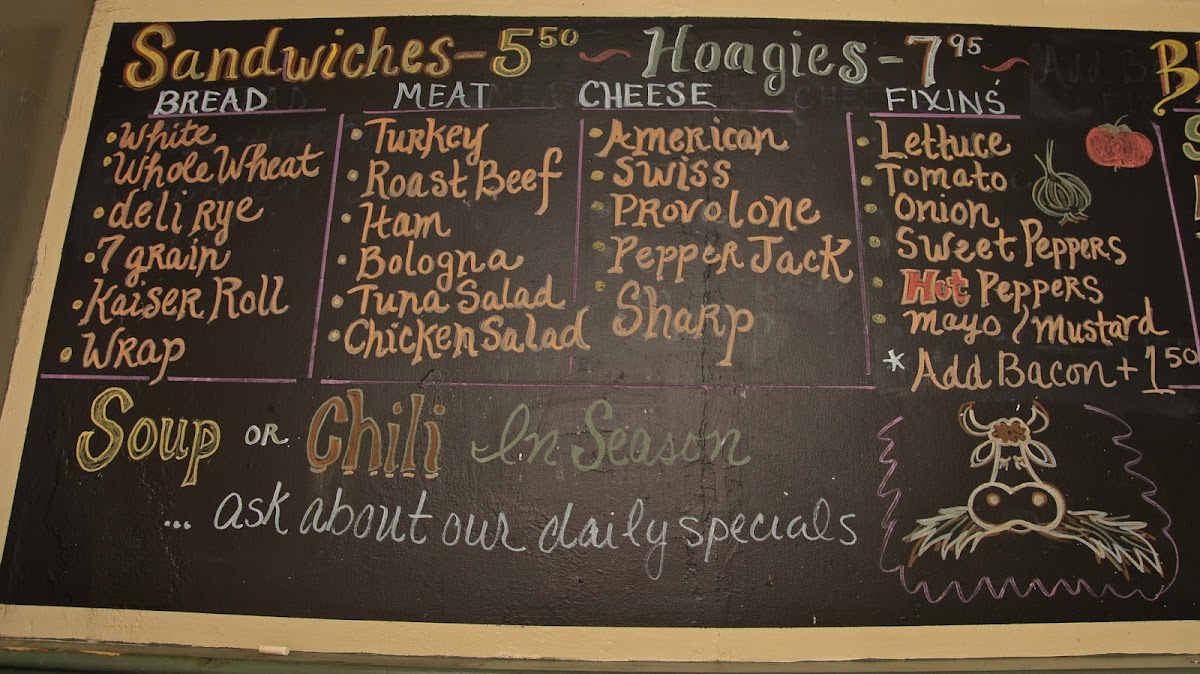 Sandwiches - 5 50 ~ Hoagies - 7 95 ~
BREAD
White
Whole Wheat
deli rye
7 grain
Kaiser Roll
Wrap
MEAT
Turkey
Roast Beef
Ham
Bologna
Tuna Salad
Chicken Salad
CHEESE
American
Swiss
Provolone
Pepper Jack
Sharp
FIXINS'
Lettuce
Tomato
Onion
Sweet Peppers
Hot Peppers
mayo / mustard
* Add Bacon + 1 50
Soup or Chili In Season
... ask about our daily specials